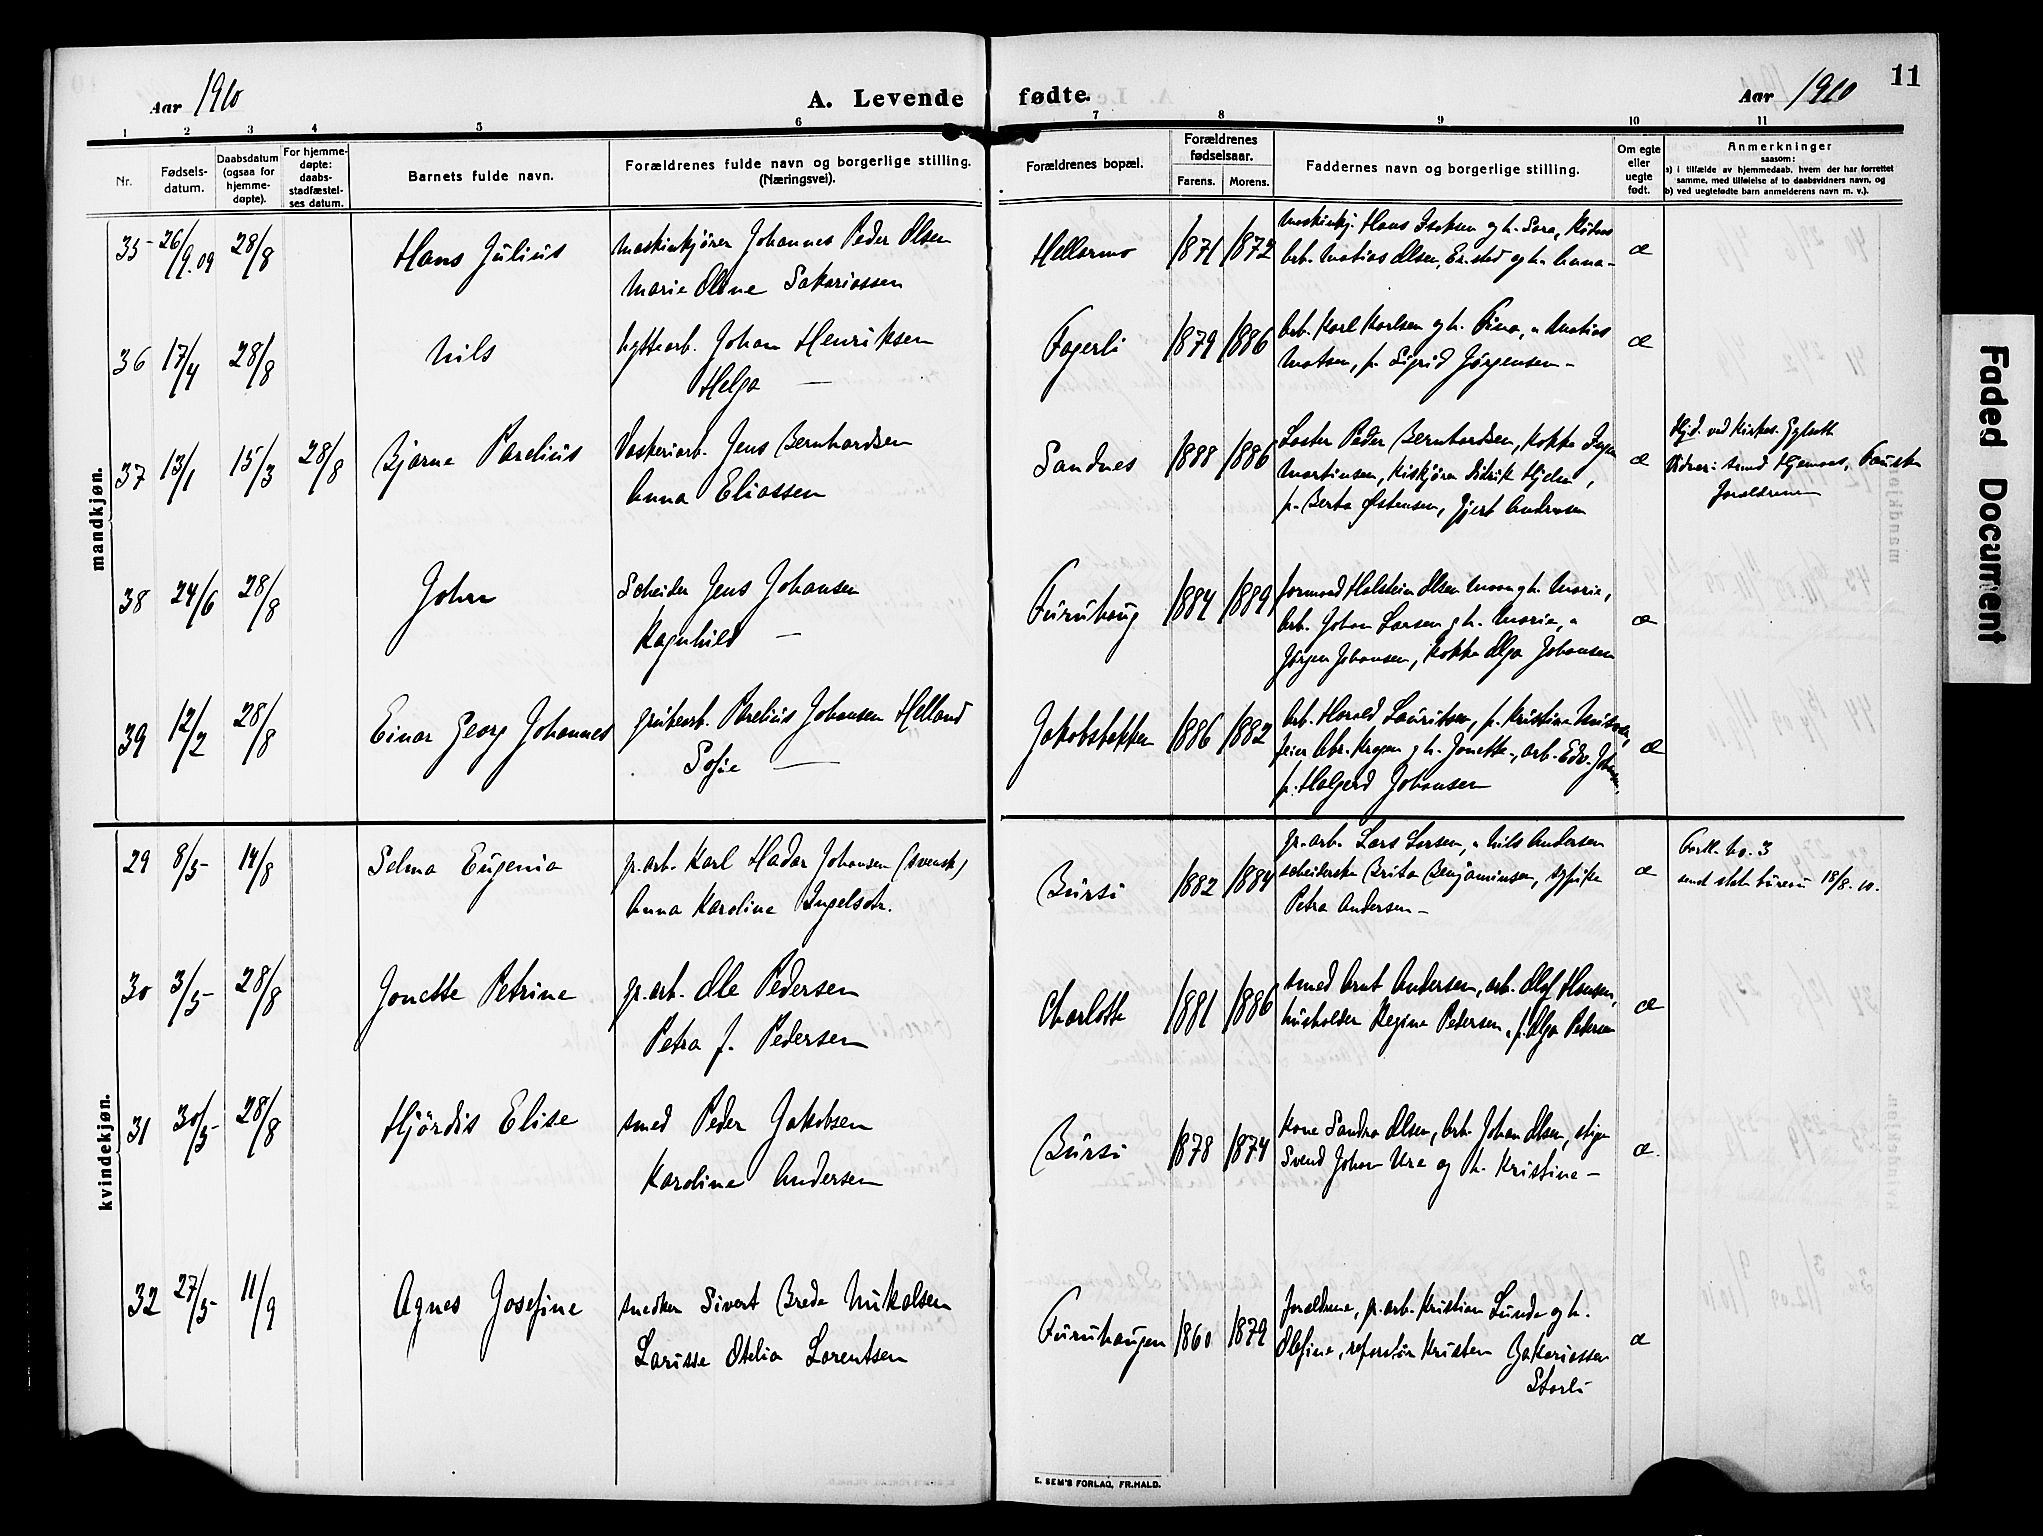 Aar 1910
A. Levende fødte.
Aar 1910
11
1 2 3 4 5 6 7 8 9 10 11
Nr.
Fødsels-
datum.
Daabsdatum
(ogsaa for
hjemme-
døpte).
For hjemme-
døpte:
daabs-
stadfæstel-
ses datum.
Barnets fulde navn.
Forældrenes fulde navn og borgerlige stilling.
(Næringsvei).
Forældrenes bopæl.
Forældrenes
fødselsaar.
Farens. Morens.
Faddernes navn og borgerlige stilling.
Om egte
eller
uegte
født.
Anmerkninger
saasom:
a) i tilfælde av hjemmedaab, hvem der har forrettet
samme, med tilføielse af to daabsvidners navn, og
b) ved uegtefødte barn anmelderens navn m. v.).
mandkjøn.
35 26/9.09 28/8
Hans Julius
Maskinkjører Johannes Peder Olsen
Marie Oline Sakariassen
Hellarmo
1871 1872
Maskinkj. Hans Isaksen og h. Sara,
Arb. Matias Olsen, og h. Anna -
æ
36 17/4 28/8
Nils
hyttearb. Johan Henriksen
Helga —
Fagerli
1879 1886
Arb. Karl Karlsen og h. Fina, " Matias
Matsen, p. Sigrid Jørgensen -
æ
37 13/1 15/3 28/8
Bjarne Parelius
Vaskeriarb. Jens Bernhardsen
Anna Eliassen
Sandnes
1888 1886
Laster Peder Bernhardsen, Kokke
Martinsen, Kiskjører Didrik
p. Berta Østensen, Gjert Andersen
æ
Hjd. ved Kirkes.
Vidner: Fauske
Forældrene
38 24/6 28/8
John
Scheider Jens Johansen
Ragnhild —
Furuhaug
1884 1889
formand Halstein Olsen Moen og h. Marie,
Arb. Johan Larsen og h. Marie, "
Jørgen Johansen, kokke Olga Johansen
æ
39 12/2 28/8
Einar Georg Johannes
grubearb. Parelius Johansen Helland
Sofie —
Jakobsbakken
1886 1882
Arb. Harald Lauritsen, p. Kristine
feier og h. Jonette -, arb. Edv.
p. Halgerd Johansen
æ
kvindekjøn.
29 8/5 14/8
Selma Eugenia
gr.arb. Karl Hadar Johansen (svensk)
Anna Karolina Ingelsdr.
Bursi
1882 1884
gr.arb. Lars Larsen, " Nils Andersen
scheiderske Brita Benjaminsen, sypike
Petra Andersen -
æ
No. 3
send stat. bureau 18/8.10.
30 3/5 28/8
Jonette Petrine
gr.arb. Ole Pedersen
Petra f. Pedersen
Charlotte
1881 1886
smed Arnt Andersen, arb. Olaf Hansen,
husholder Regine Pedersen, p. Olga Petersen
æ
31 30/5 28/8
Hjördis Elise
smed Peder Jakobsen
Karoline Andersen
Bursi
1878 1874
Kone Sandra Olsen, Arb. Johan Olsen, stiger
Svend Johan Ure og h. Kristine -
æ.
32 27/5 11/9
Agnes Josefine
snedker Sivert Brede Nikolsen
Larisse Otelia Lorentsen
Furuhaugen
1860 1879
forældrene, gr.arb. Kristian Lunde og h.
Olefine, Kristen Zakariassen
Storli
æ
E. SEM'S FORLAG, FR.HALD.
Faded Document